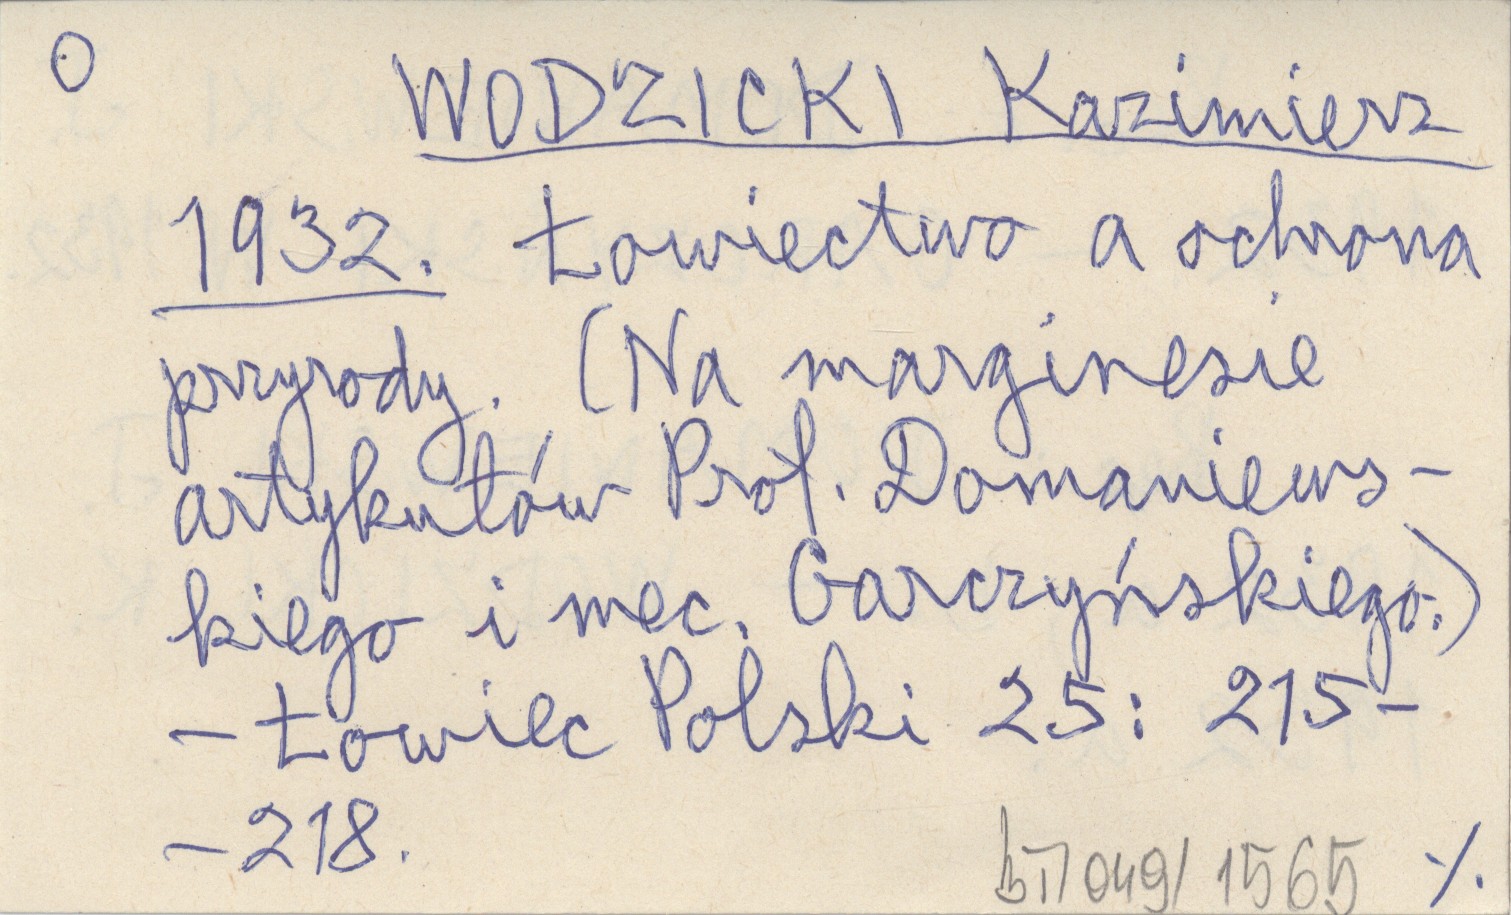 O
WODZICKI Kazimierz
1932. Łowiectwo a ochrona
przyrody. (Na marginesie
artykułów Prof. Domaniews-
kiego i mec. Garczyńskiego.)
- Łowiec Polski 25: 215-
-218.
049/1565 ·/.